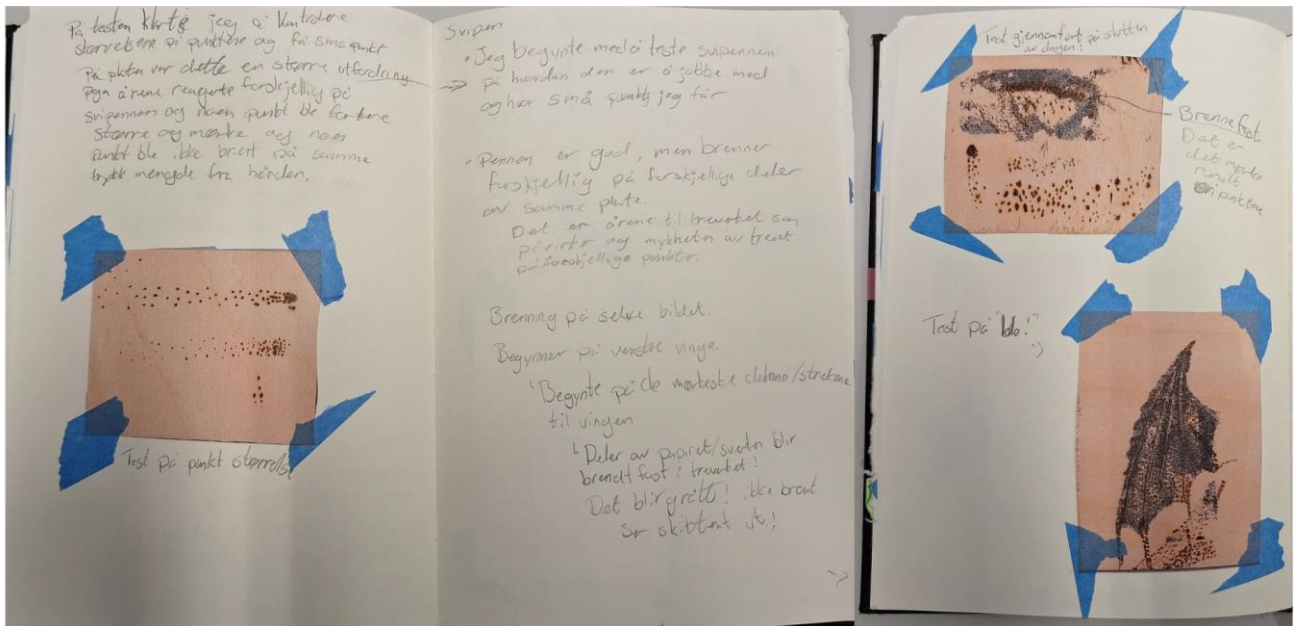 På testen klarte jeg å kontrolere
størrelsene på punktene og få små punkt
På platen var dette en større utfordring
pga årene reagerte forskjellig på
svipennen og noen punkt ble
større og mørke og noen
punkt ble ikke brent på samme
trykk mengde fra hånden.
Test på punkt størrelse
Svipen
• Jeg begynte med å teste svipennen
på hvordan den er å jobbe med
og hvor små punkt jeg får
• Pennen er god, men brenner
forskjellig på forskjellige deler
av samme plate.
Det er årene til treverket som
påvirker og mykheten av treet
på forskjellige punkter.
Brenning på selve bildet.
Begynner på venstre vinge.
Begynte på de mørkeste delene/strekene
til vingen
Deler av papiret/sverten blir
brendt fast i treverket!
Det blir grått! ikke brent
Ser skittent ut!
Test gjennomført på slutten
av dagen!
Brennefast
Det er
det mørke
rundt
punktene
Test på "ble!"